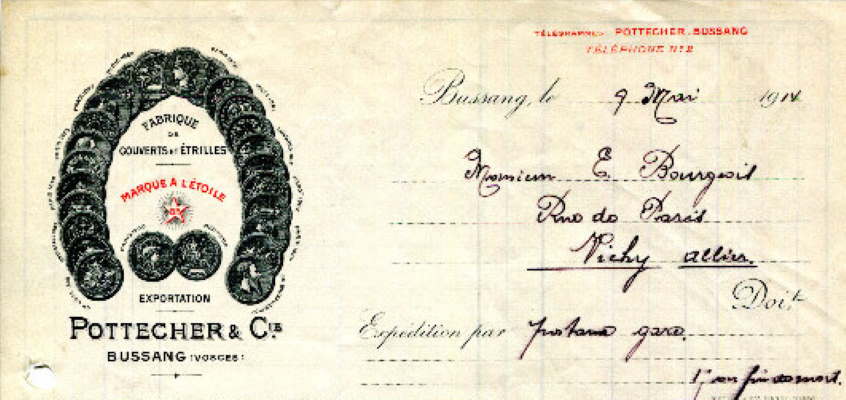 TÉLÉGRAMMES POTTECHER. BUSSANG
TÉLÉPHONE Nº 2
Bussang, le 9 Mai 1914
FABRIQUE
DE
COUVERTS ET ÉTRILLES
MARQUE A L'ÉTOILE
EXPORTATION
POTTECHER & CIE
BUSSANG (VOSGES)
Monsieur E. Bourgeois
Rue de Paris
Vichy Allier.
Doit
Expédition par gare.